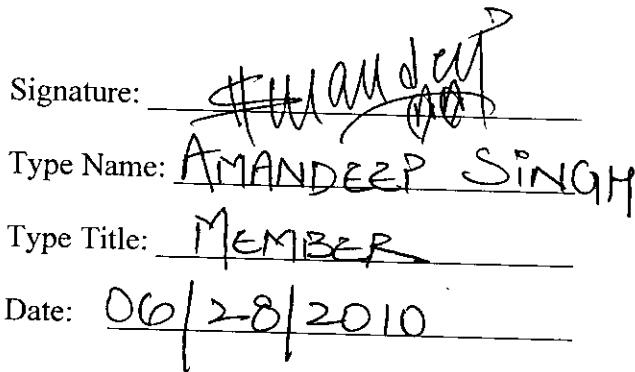 Signature: Amandeep
Type Name: AMANDEEP SINGH
Type Title: MEMBER
Date: 06/28/2010